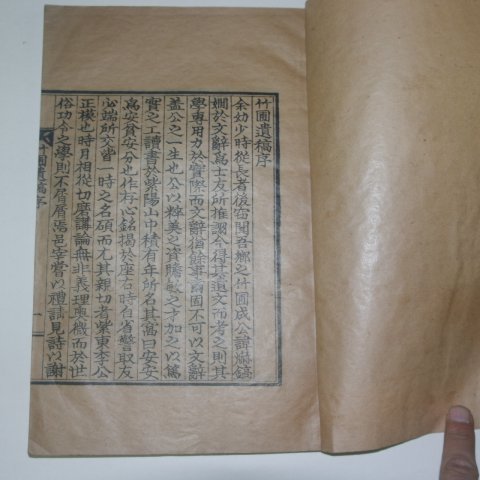 竹圃遺稿序
余幼少時從長者後窃聞吾鄕之竹圃成公諱 鎬
嫺於文辭爲士友所推詡今得其遺文而考之則其
學專用力於實際而文辭後餘事爾固不可以文辭
盖公之一生也公以粹美之資贍敏之才加之以篤
實之工讀書於紫陽山中積有年所名其窩曰安安
爲安貧安分也作存心銘揭於座右時自省警取友
必端所交皆一時之名碩而尤其親切者紫東李公
正模也時月相從切磨講論無非義理奧機而於世
俗功令之學則不屑屑焉邑宰嘗以禮請見詩以謝
竹圃遺稿序
一